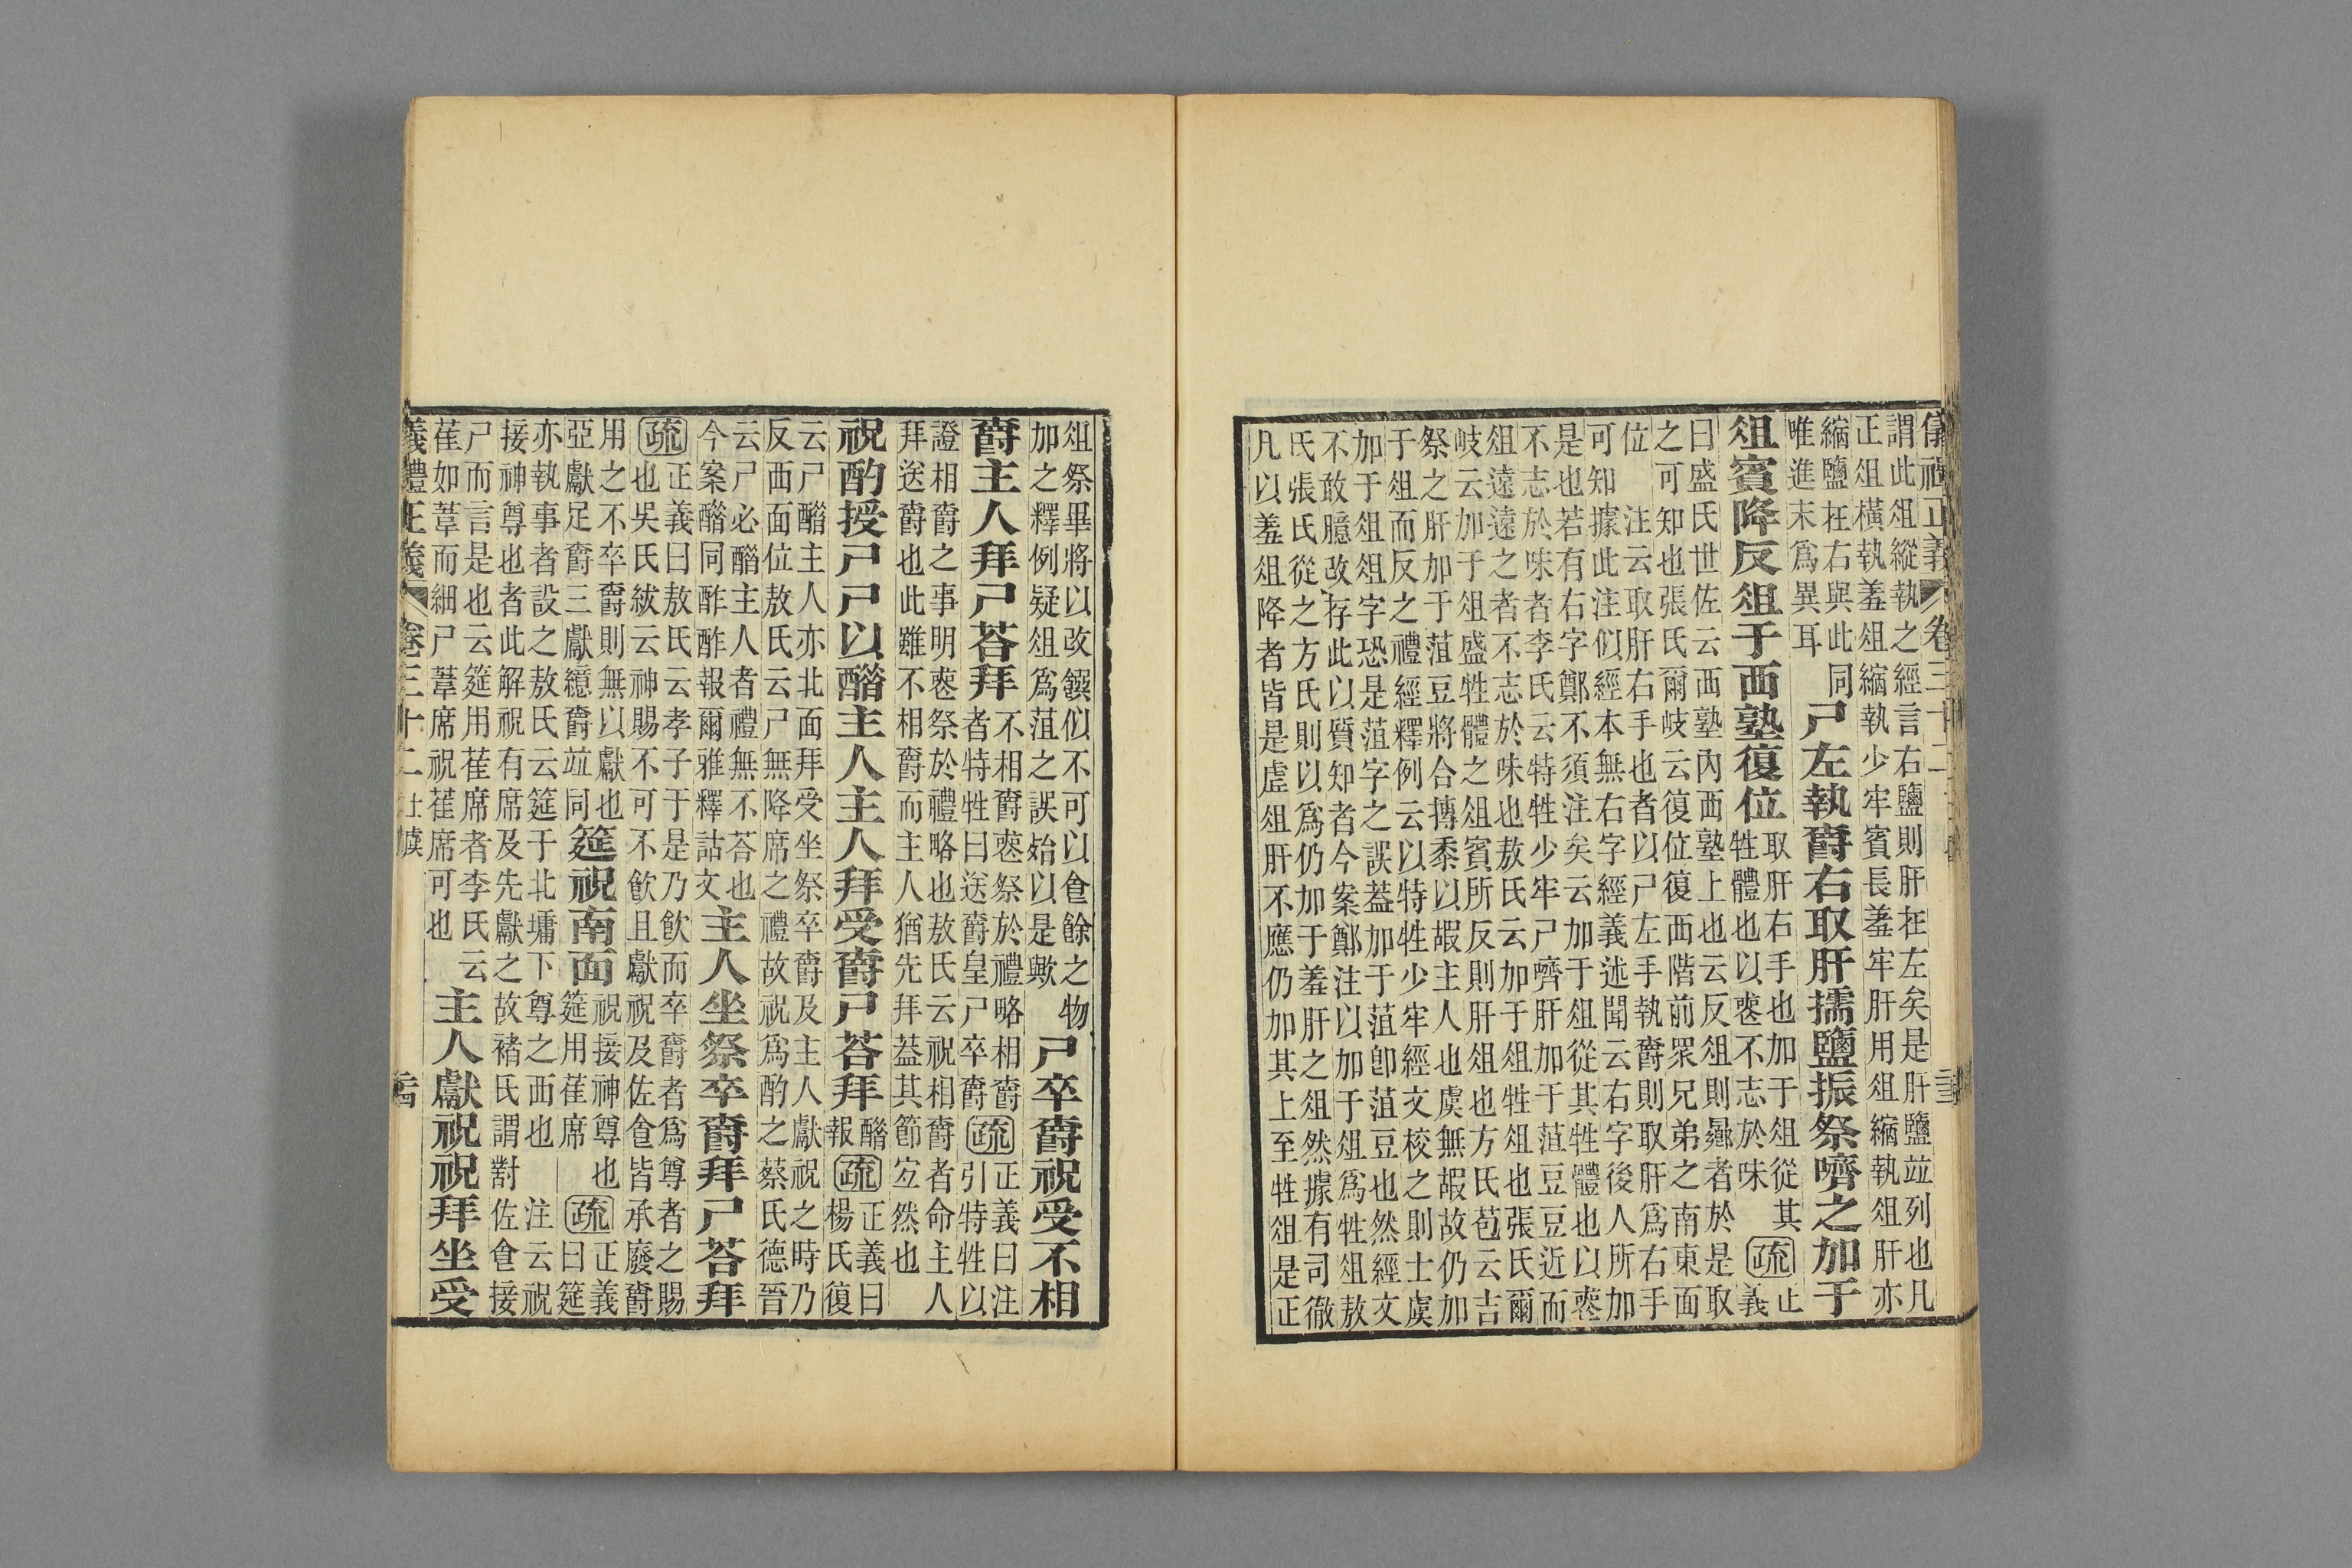 儀禮正義 卷三十二
謂此俎縱執之經言右鹽則肝在左矣是肝鹽竝列也凡
正俎橫執羞俎縮執少牢賓長羞牢肝用俎縮執俎肝亦
縮鹽在右與此同
唯進末爲異耳
尸左執爵右取肝擩鹽振祭嚌之加于
俎賓降反俎于西塾復位
取肝右手也加于俎從其
牲體也以喪不志於味
疏
正
義
曰盛氏世佐云西塾內西塾上也云反俎則曏者於是取
之可知也張氏爾岐云復位復西階前眾兄弟之南東面
位 注云取肝右手也者以尸左手執爵則取肝爲右手
可知據此注似經本無右字經義述聞云右字後人所加
是也若有右字鄭不須注矣云加于俎從其牲體也以喪
不志於味者李氏云特牲少牢尸嚌肝加于菹豆豆近而
俎遠遠之者不志於味也敖氏云加于俎牲俎也張氏爾
岐云加于俎盛牲體之俎賓所反則肝俎也方氏苞云吉
祭之肝加于菹豆將合摶黍以嘏主人也虞無嘏故仍加
于俎而反之禮經釋例云以特牲少牢經文校之則士虞
加于俎俎字恐是菹字之誤蓋加于菹卽菹豆也然經文
不敢臆改存此以質知者今案鄭注以加于俎爲牲俎敖
氏張氏從之方氏則以爲仍加于羞肝之俎然據有司徹
凡以羞俎降者皆是虛俎肝不應仍加其上至牲俎是正
俎祭畢將以改饌似不可以食餘之物
加之釋例疑俎爲菹之誤始以是歟
尸卒爵祝受不相
爵主人拜尸荅拜
不相爵喪祭於禮略相爵
者特牲曰送爵皇尸卒爵
疏
正義曰注
引特牲以
證相爵之事明喪祭於禮略也敖氏云祝相爵者命主人
拜送爵也此雖不相爵而主人猶先拜蓋其節宐然也
祝酌授尸尸以醋主人主人拜受爵尸荅拜
醋
報
疏
正義曰
楊氏復
云尸醋主人亦北面拜受坐祭卒爵及主人獻祝之時乃
反西面位敖氏云尸無降席之禮故祝爲酌之蔡氏德晉
云尸必醋主人者禮無不荅也
今案醋同酢酢報爾雅釋詁文
主人坐祭卒爵拜尸荅拜
疏
正義曰敖氏云孝子于是乃飮而卒爵者爲尊者之賜
也吳氏紱云神賜不可不飮且獻祝及佐食皆承廢爵
用之不卒爵則無以獻也
亞獻足爵三獻繶爵竝同
筵祝南面
祝接神尊也
筵用萑席
疏
正義
曰筵
亦執事者設之敖氏云筵于北墉下尊之西也 注云祝
接神尊也者此解祝有席及先獻之故褚氏謂對佐食接
尸而言是也云筵用萑席者李氏云
萑如葦而細尸葦席祝萑席可也
主人獻祝祝拜坐受
儀禮正義 卷三十二